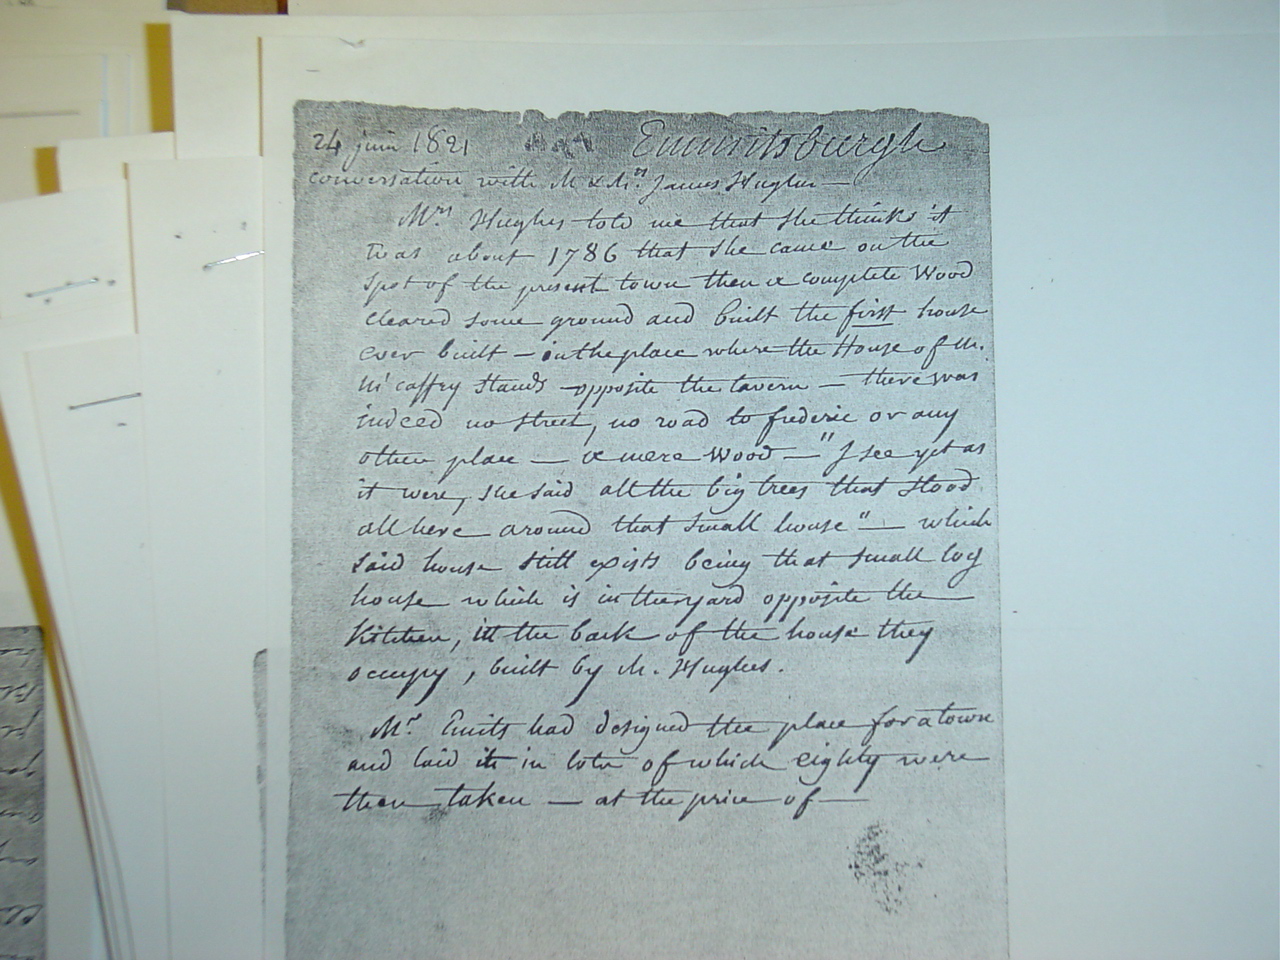 24 juin 1821 Emmitsburgh
conversation with M & Mrs James Hughes —
Mrs Hughes told me that she thinks it
was about 1786 that she came on the
spot of the present town then a complete Wood
cleared some ground and built the first house
ever built — in the place where the House of M.
Mc caffry stands — opposite the tavern — there was
indeed no street, no road to frederic or any
other place — a mere Wood — "I see yet as
it were, she said all the big trees that stood
all here around that small house" — which
said house still exists being that small log
house which is in the yard opposite the
Kitchen, in the back of the house they
occupy, built by M. Hughes.
Mr Emits had designed the place for a town
and laid it in lots of which eighty were
then taken — at the price of —